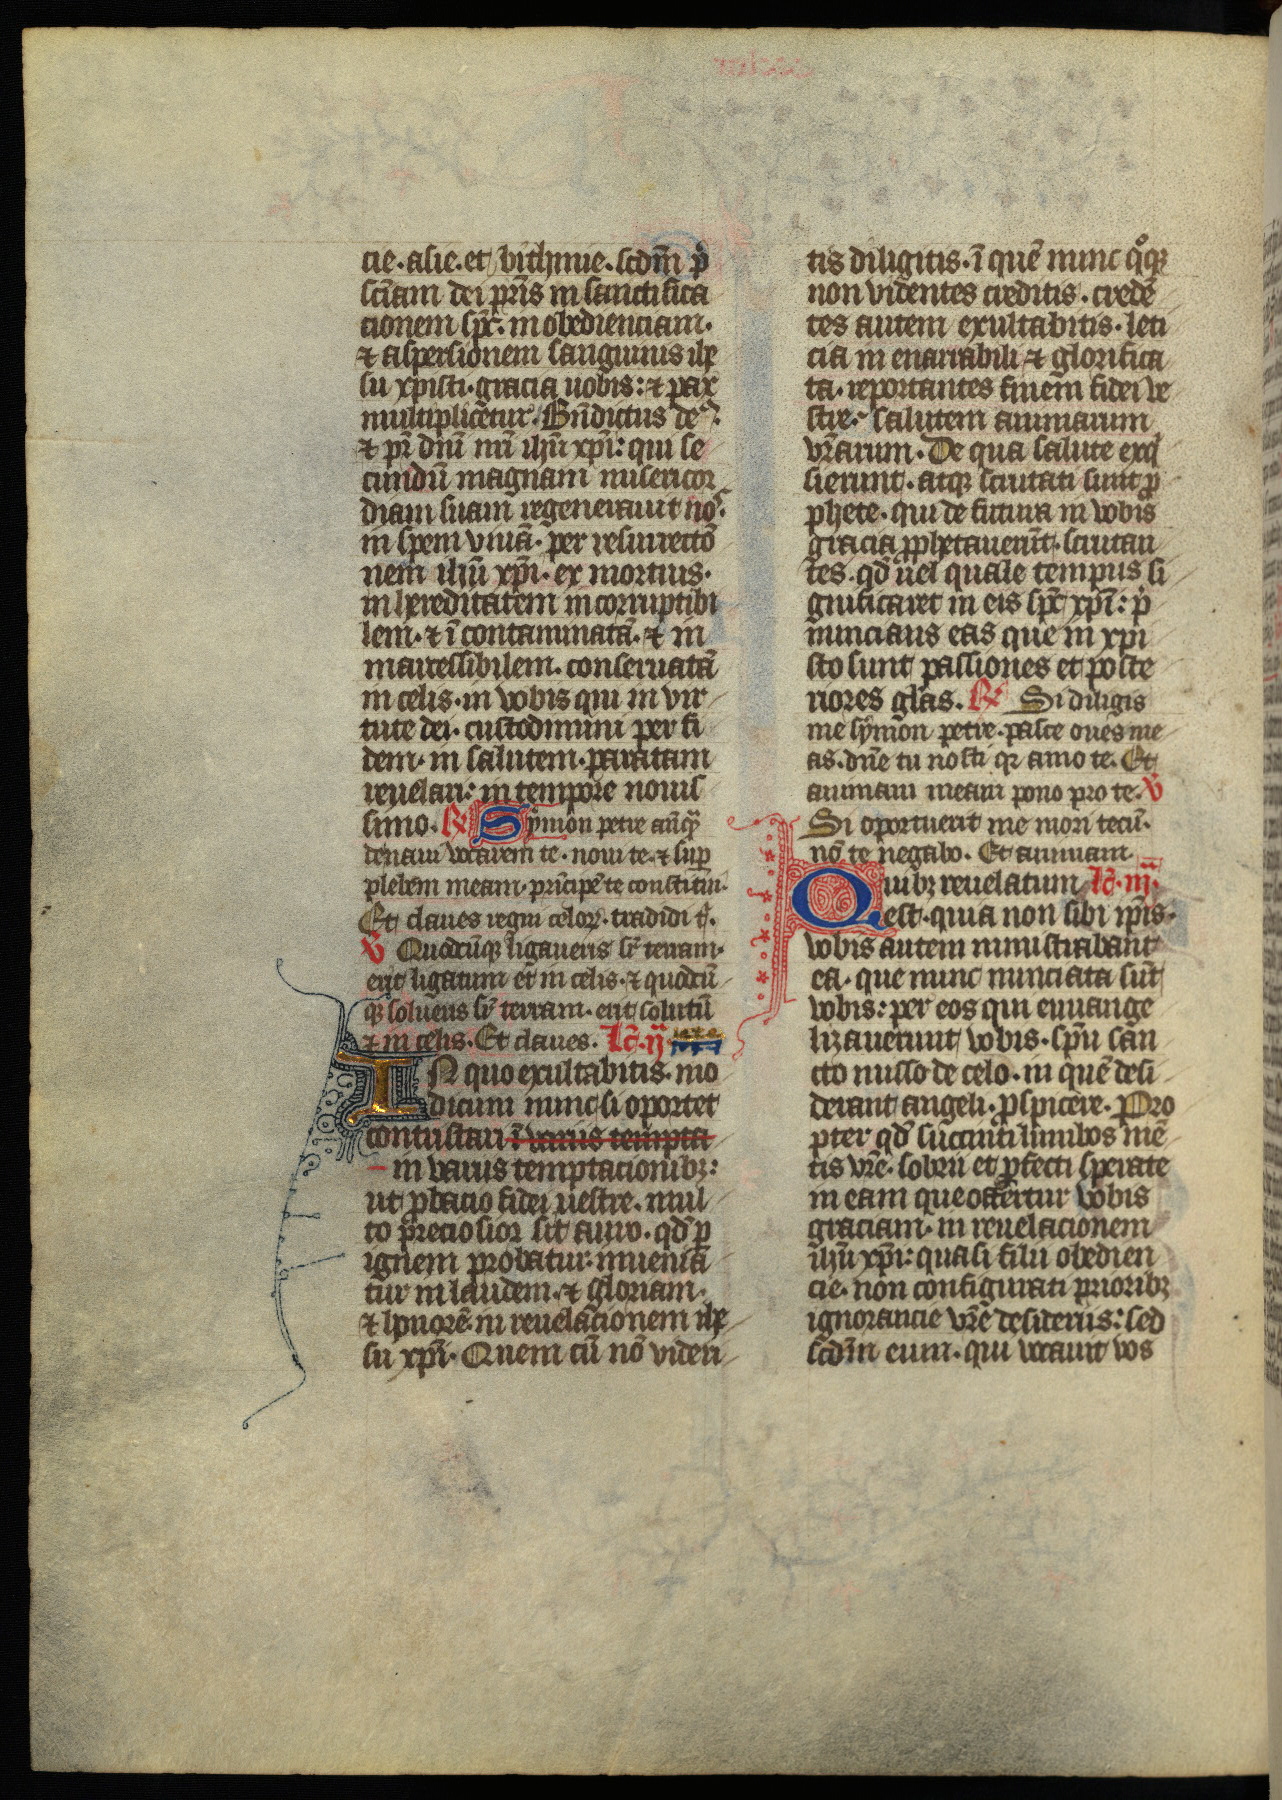 cie. asie. et bithinie. scdm̄ p̄
sciam dei pr̄is in sanctifica
cionem sp̄c. in obedienciam.
⁊ aspersionem sanguinis ihe
su xpisti. gracia uobis: ⁊ pax
multiplicetur. Bn̄dictus deꝰ.
⁊ pr̄ dn̄i nr̄i ihū xp̄i: qui se
cundū magnam misericor
diam suam regenerauit nos.
in spem viuā. per resurrecto
nem ihū xp̄i. ex mortuis.
in hereditatem in corruptibi
lem. ⁊ ī contaminatā. ⁊ in
marcessibilem. conseruatā
in celis. in vobis qui in vir
tute dei. custodimini per fi
dem. in salutem. paratam
reuelari: in tempore nouis
simo. ℟ Symon petre anꝗ̄
denaui vocarem te. noui te. ⁊ suꝑ
plebem meam. principē te constitui.
Et claues regni celoꝝ. tradidi t̄.
℣ Quodcūꝗ ligaueris sr̄ terram.
erit ligatum et in celis. ⁊ quodcū
ꝗ solueris sr̄ terram. erit solutū
⁊ in celis. Et claues. Lc̄. ij
IN quo exultabitis. mo
dicum nunc si oportet
contristari ī variis tempta
in variis temptacionibꝫ:
ut ꝓbacio fidei uestre. mul
to preciosior sit auro. qd̄ ꝑ
ignem probatur. inueniā
tur in laudem. ⁊ gloriam.
⁊ honorē. in reuelacionem ihe
su xp̄i. Quem cū nō viden
tis diligitis. ī quē nunc qͦꝗ
non videntes creditis. credē
tes autem exultabitis. leti
cia in enarrabili ⁊ glorifica
ta. reportantes finem fidei ve
stre. salutem animarum
vr̄arum. De qua salute exq
sierunt. atꝗ scrutati sunt ꝓ
phete. qui de futura in vobis
gracia ꝓphetauerūt. scrutan
tes. qd̄ uel quale tempus si
gnificaret in eis sp̄c xp̄i: p̄
nuncians eas que in xpi
sto sunt passiones et poste
riores gl̄as. ℟ Si diligis
me symon petre. pasce oues me
as. dn̄e tu nosti qr amo te. Et
animam meam pono pro te. ℣
Si oportuerit me mori tecū.
nō te negabo. Et animam.
Quibꝫ reuelatum Lc̄. iij.
est. quia non sibi ip̄is.
vobis autem ministrabant
ea. que nunc nunciata sūt
vobis: per eos qui euuange
lizauerunt vobis. sp̄u san
cto misso de celo. in quē desi
derant angeli. ꝓspicere. Pro
pter qd̄ succincti lumbos mē
tis vr̄e. sobrii et ꝑfecti sperate
in eam que offertur vobis
graciam. in reuelacionem
ihū xp̄i: quasi filii obedien
cie. non configurati prioribꝫ
ignorancie vr̄e desideriis: sed
scdm̄ eum. qui vocauit vos